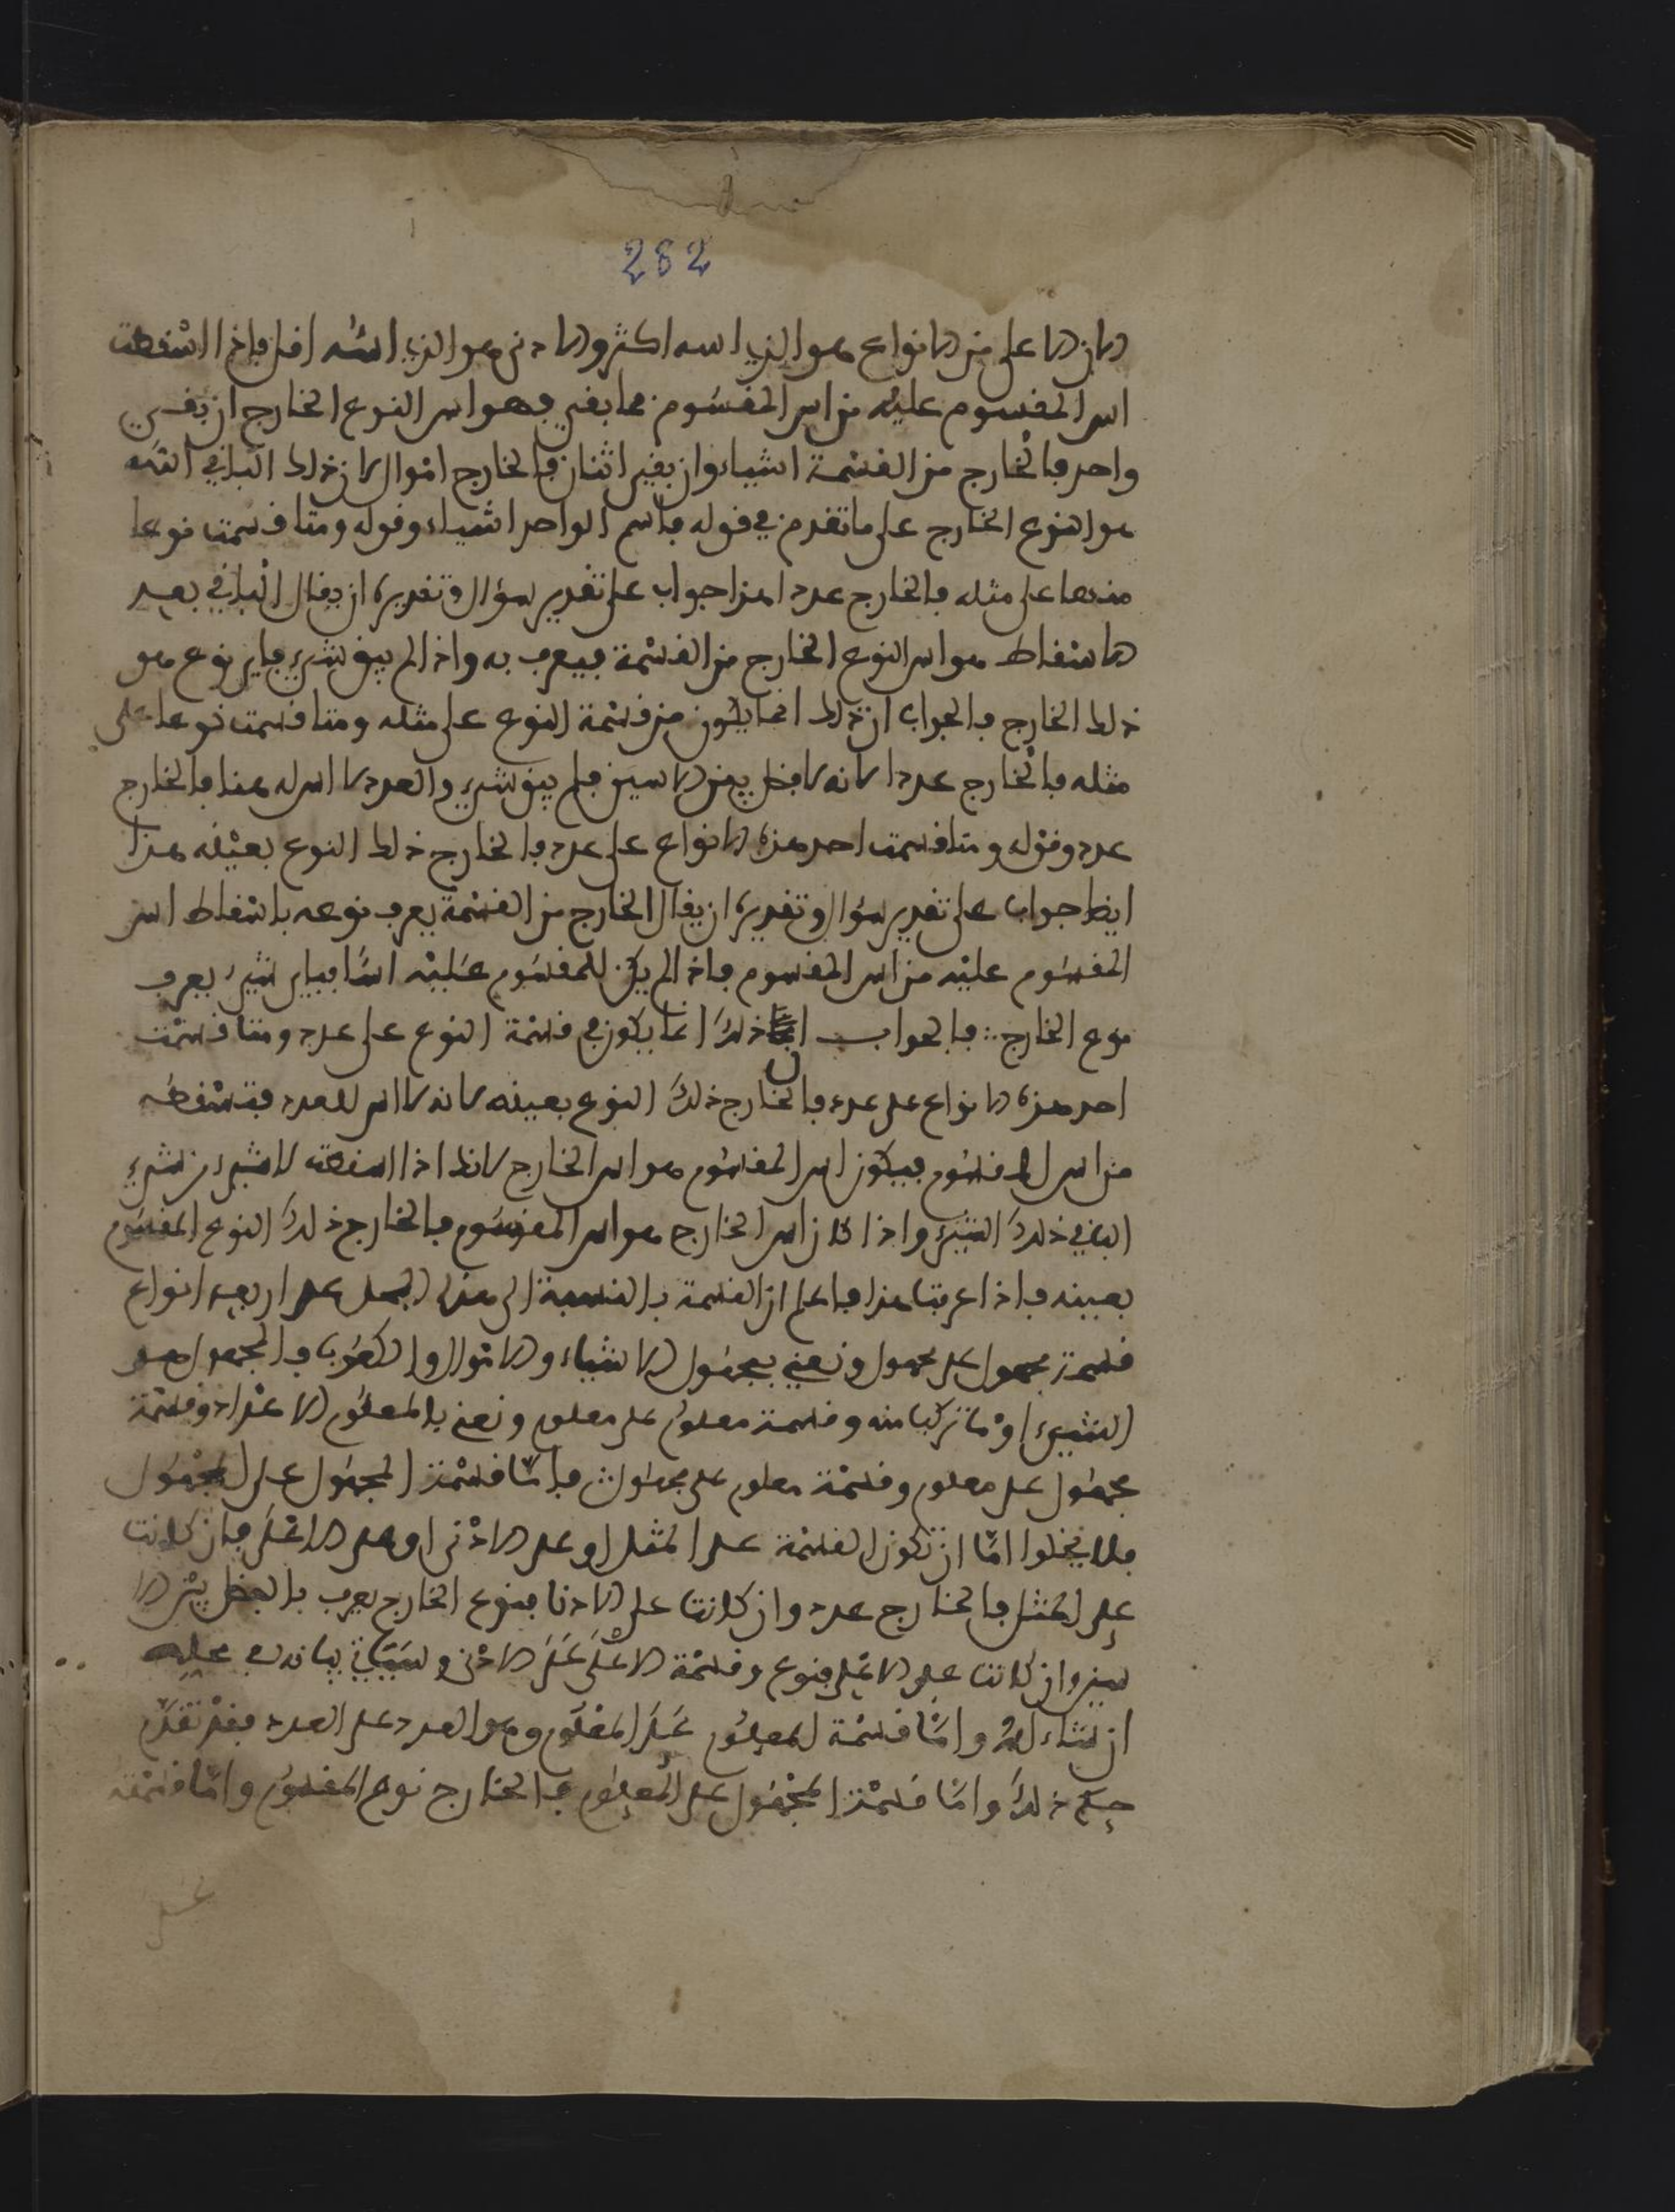 282
لان الاعلى من الانواع هو الذي اسه اكثر والادنى هو الذي اسه اقل فاذا اسقطت
اس المقسوم عليه من اس المقسوم فما بقي فهو اس النوع الخارج ان بقي
واحد فالخارج من القسمة اشياء وان بقي اثنان فالخارج اموال لان ذلك الباقي اسه
هو النوع الخارج على ما تقدم في قوله فاسم الواحد اشياء وقوله ومتا قسمت نوعا
منها على مثله فالخارج عدد هذا جواب على تقدير سؤال وتقديره ان يقال الباقي بعد
الاسقاط هو اس النوع الخارج من القسمة فيعرف به واذا لم يبق شيء فاي نوع هو
ذلك الخارج فالجواب ان ذلك انما يكون من قسمة النوع على مثله ومتا قسمت نوعا على
مثله فالخارج عددا لانه لا فضل بين الاسين فلم يبق شيء والعدد لا اس له هنا فالخارج
عدد وقوله ومتا قسمت احد هذه الانواع على عدد فالخارج ذلك النوع بعينه هذا
ايظا جواب على تقدير سؤال وتقديره ان يقال الخارج من القسمة يعرف نوعه باسقاط اس
المقسوم عليه من اس المقسوم فاذا لم يكن للمقسوم عليه اسا فباي شيء يعرف
نوع الخارج فالجواب ان ذلك انما يكون في قسمة النوع على عدد ومتا قسمت
احد هذه الانواع على عدد فالخارج ذلك النوع بعينه لانه لا اس للعدد فتسقطه
من اس المقسوم فيكون اس المقسوم هو اس الخارج لانك اذا اسقطت لا شيء من شيء
البافي ذلك الشيء واذا كان اس الخارج هو اس المقسوم فالخارج ذلك النوع المقسوم
بعينه فاذا عرفت هذا فاعلم ان القسمة بالنسبة الى هذا العمل على اربعة انواع
قسمة مجهول على مجهول ونعني بمجهول الاشياء والاموال والكعوب فالمجهول هو
الشيء او ما تركب منه وقسمة معلوم على معلوم ونعني بالمعلوم الاعداد وقسمة
مجهول على معلوم وقسمة معلوم على مجهول فاما قسمة المجهول على المجهول
فلا يخلوا اما ان تكون القسمة على المثل او على الادنى او على الاعلى فان كانت
على المثل فالخارج عدد وان كانت على الادنا فنوع الخارج يعرف بالفضل بين الا
سين وان كانت على الاعلى فنوع وقسمة الاعلى على الادنى وسيأتي بيانه في محله
ان شاء الله واما قسمة المعلوم على المعلوم وهو العدد على العدد فقد تقدم
جميع ذلك واما قسمة المجهول على المعلوم فالخارج نوع المقسوم واما قسمة
على